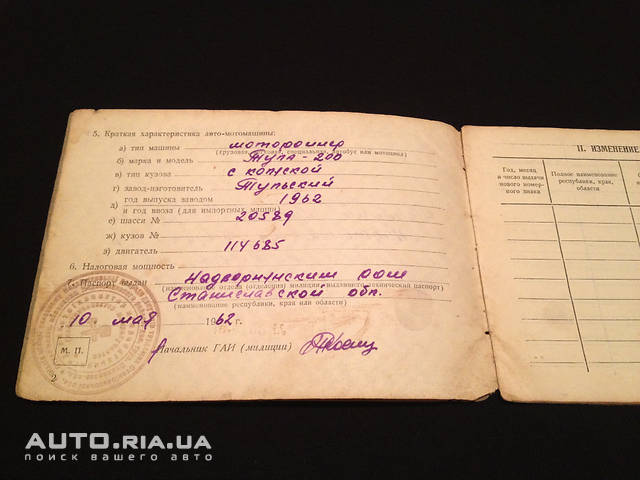 5. Краткая характеристика авто-мотомашины:
а) тип машины мотороллер
(грузовая, легковая, специальная, автобус или мотоцикл)
б) марка и модель Тула-200
в) тип кузова с коляской
г) завод-изготовитель Тульский
д) год выпуска заводом 1962
и год ввоза (для импортных машин)
е) шасси № 20589
ж) кузов №
з) двигатель 114685
6. Налоговая мощность
7. Паспорт выдан Надворнянским
(наименование отдела (отделения) милиции, выдавшего технический паспорт)
Станиславской обл.
(наименование республики, края или области)
10 мая 1962 г.
М. П.
Начальник ГАИ (милиции)
2
II. ИЗМЕНЕНИЕ
Год, месяц
и число выдачи
нового номер-
ного знака
Полное наименование
республики, края,
области
AUTO.RIA.UA
поиск вашего авто